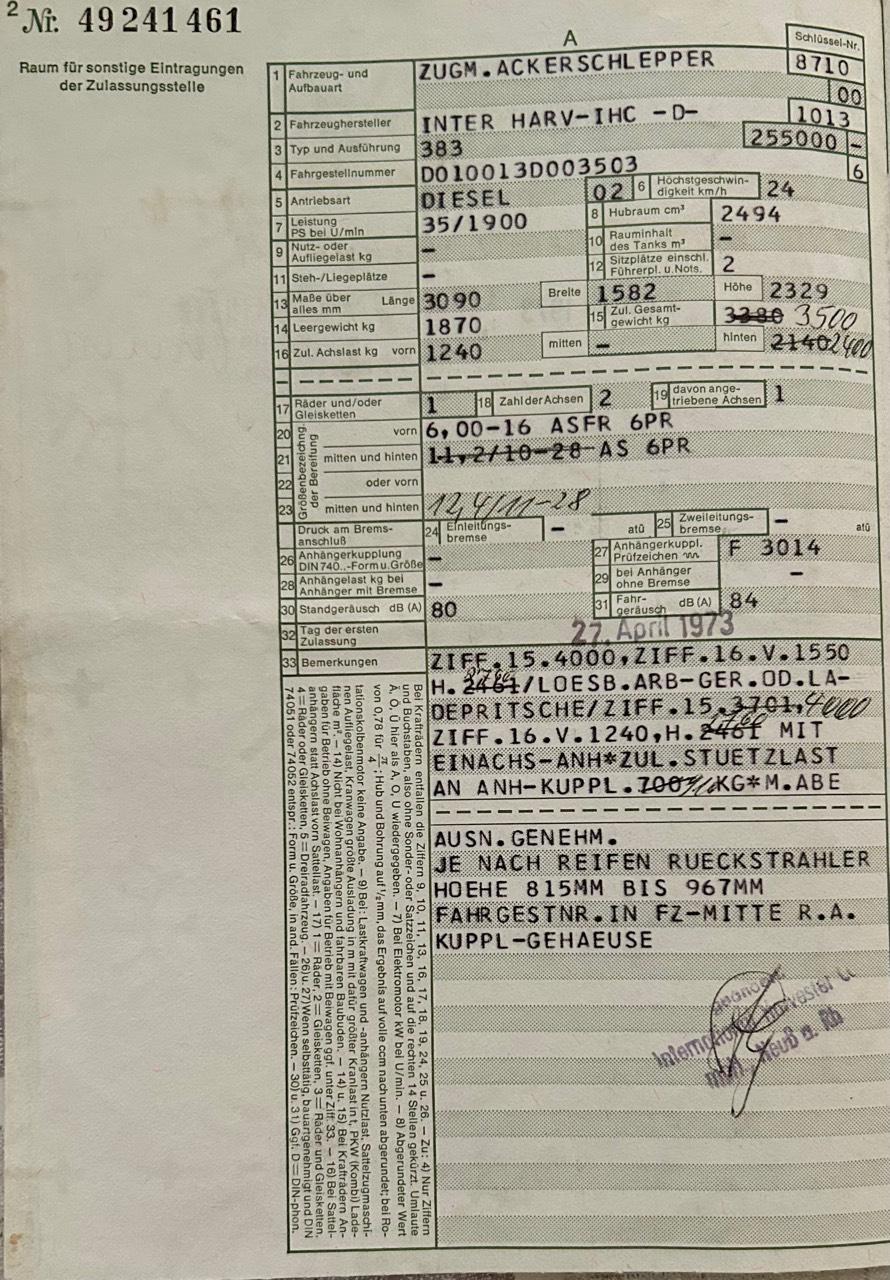 2 Nr. 49241461
Raum für sonstige Eintragungen
der Zulassungsstelle
A
Schlüssel-Nr.
1 Fahrzeug- und Aufbauart ZUGM.ACKERSCHLEPPER 8710
00
2 Fahrzeughersteller INTER HARV-IHC -D- 1013
3 Typ und Ausführung 383 255000 -
4 Fahrgestellnummer D010013D003503 6
5 Antriebsart DIESEL 02 6 Höchstgeschwin-digkeit km/h 24
7 Leistung PS bei U/min 35/1900 8 Hubraum cm³ 2494
9 Nutz- oder Aufliegelast kg - 10 Rauminhalt des Tanks m³ -
11 Steh-/Liegeplätze - 12 Sitzplätze einschl. Führerpl. u. Nots. 2
13 Maße über alles mm Länge 3090 Breite 1582 Höhe 2329
14 Leergewicht kg 1870 15 Zul. Gesamt-gewicht kg 3380 3500
16 Zul. Achslast kg vorn 1240 mitten - hinten 2140 2400
17 Räder und/oder Gleisketten 1 18 Zahl der Achsen 2 19 davon ange-triebene Achsen 1
Größenbezeichnung der Bereifung
20 vorn 6,00-16 ASFR 6PR
21 mitten und hinten 11,2/10-28 AS 6PR
22 oder vorn
23 mitten und hinten 12,4/11-28
Druck am Brems-anschluß 24 Einleitungs-bremse - atü 25 Zweileitungs-bremse - atü
26 Anhängerkupplung DIN 740..-Form u. Größe - 27 Anhängerkuppl. Prüfzeichen F 3014
28 Anhängelast kg bei Anhänger mit Bremse - 29 bei Anhänger ohne Bremse -
30 Standgeräusch dB (A) 80 31 Fahr-geräusch dB (A) 84
32 Tag der ersten Zulassung 27. April 1973
33 Bemerkungen ZIFF.15.4000,ZIFF.16.V.1550
H. 2461/LOESB.ARB-GER.OD.LA-
DEPRITSCHE/ZIFF.15.3701, 4000
ZIFF.16.V.1240,H.2461 MIT
EINACHS-ANH*ZUL.STUETZLAST
AN ANH-KUPPL.700 KG*M.ABE
AUSN.GENEHM.
JE NACH REIFEN RUECKSTRAHLER
HOEHE 815MM BIS 967MM
FAHRGESTNR.IN FZ-MITTE R.A.
KUPPL-GEHAEUSE
International Harvester Co
Neuß a. Rh
Bei Krafträdern entfallen die Ziffern 9, 10, 11, 13, 16, 17, 18, 19, 24, 25 u. 26. – Zu: 4) Nur Ziffern
und Buchstaben, also ohne Sonder- oder Satzzeichen und auf die rechten 14 Stellen gekürzt. Umlaute
Ä, Ö, Ü hier als A, O, U wiedergegeben. – 7) Bei Elektromotor kW bei U/min. – 8) Abgerundeter Wert
von 0,78 für π/4; Hub und Bohrung auf ½ mm, das Ergebnis auf volle ccm nach unten abgerundet; bei Ro-
tationskolbenmotor keine Angabe. – 9) Bei: Lastkraftwagen und -anhängern Nutzlast, Sattelzugmaschi-
nen Aufliegelast, Kranwagen größte Ausladung in m mit dafür größter Kranlast in t, PKW (Kombi) Lade-
fläche m². – 14) Nicht bei Wohnanhängern und fahrbaren Baubuden. – 14) u. 15) Bei Krafträdern An-
gaben für Betrieb ohne Beiwagen, Angaben für Betrieb mit Beiwagen ggf. unter Ziff. 33. – 16) Bei Sattel-
anhängern statt Achslast vorn Sattellast. – 17) 1 = Räder, 2 = Gleisketten, 3 = Räder und Gleisketten,
4 = Räder oder Gleisketten, 5 = Dreiradfahrzeug. – 26) u. 27) Wenn selbsttätig, bauartgenehmigt und DIN
74051 oder 74052 entspr.: Form u. Größe, in and. Fällen: Prüfzeichen. – 30) u. 31) Ggf. D = DIN-phon.